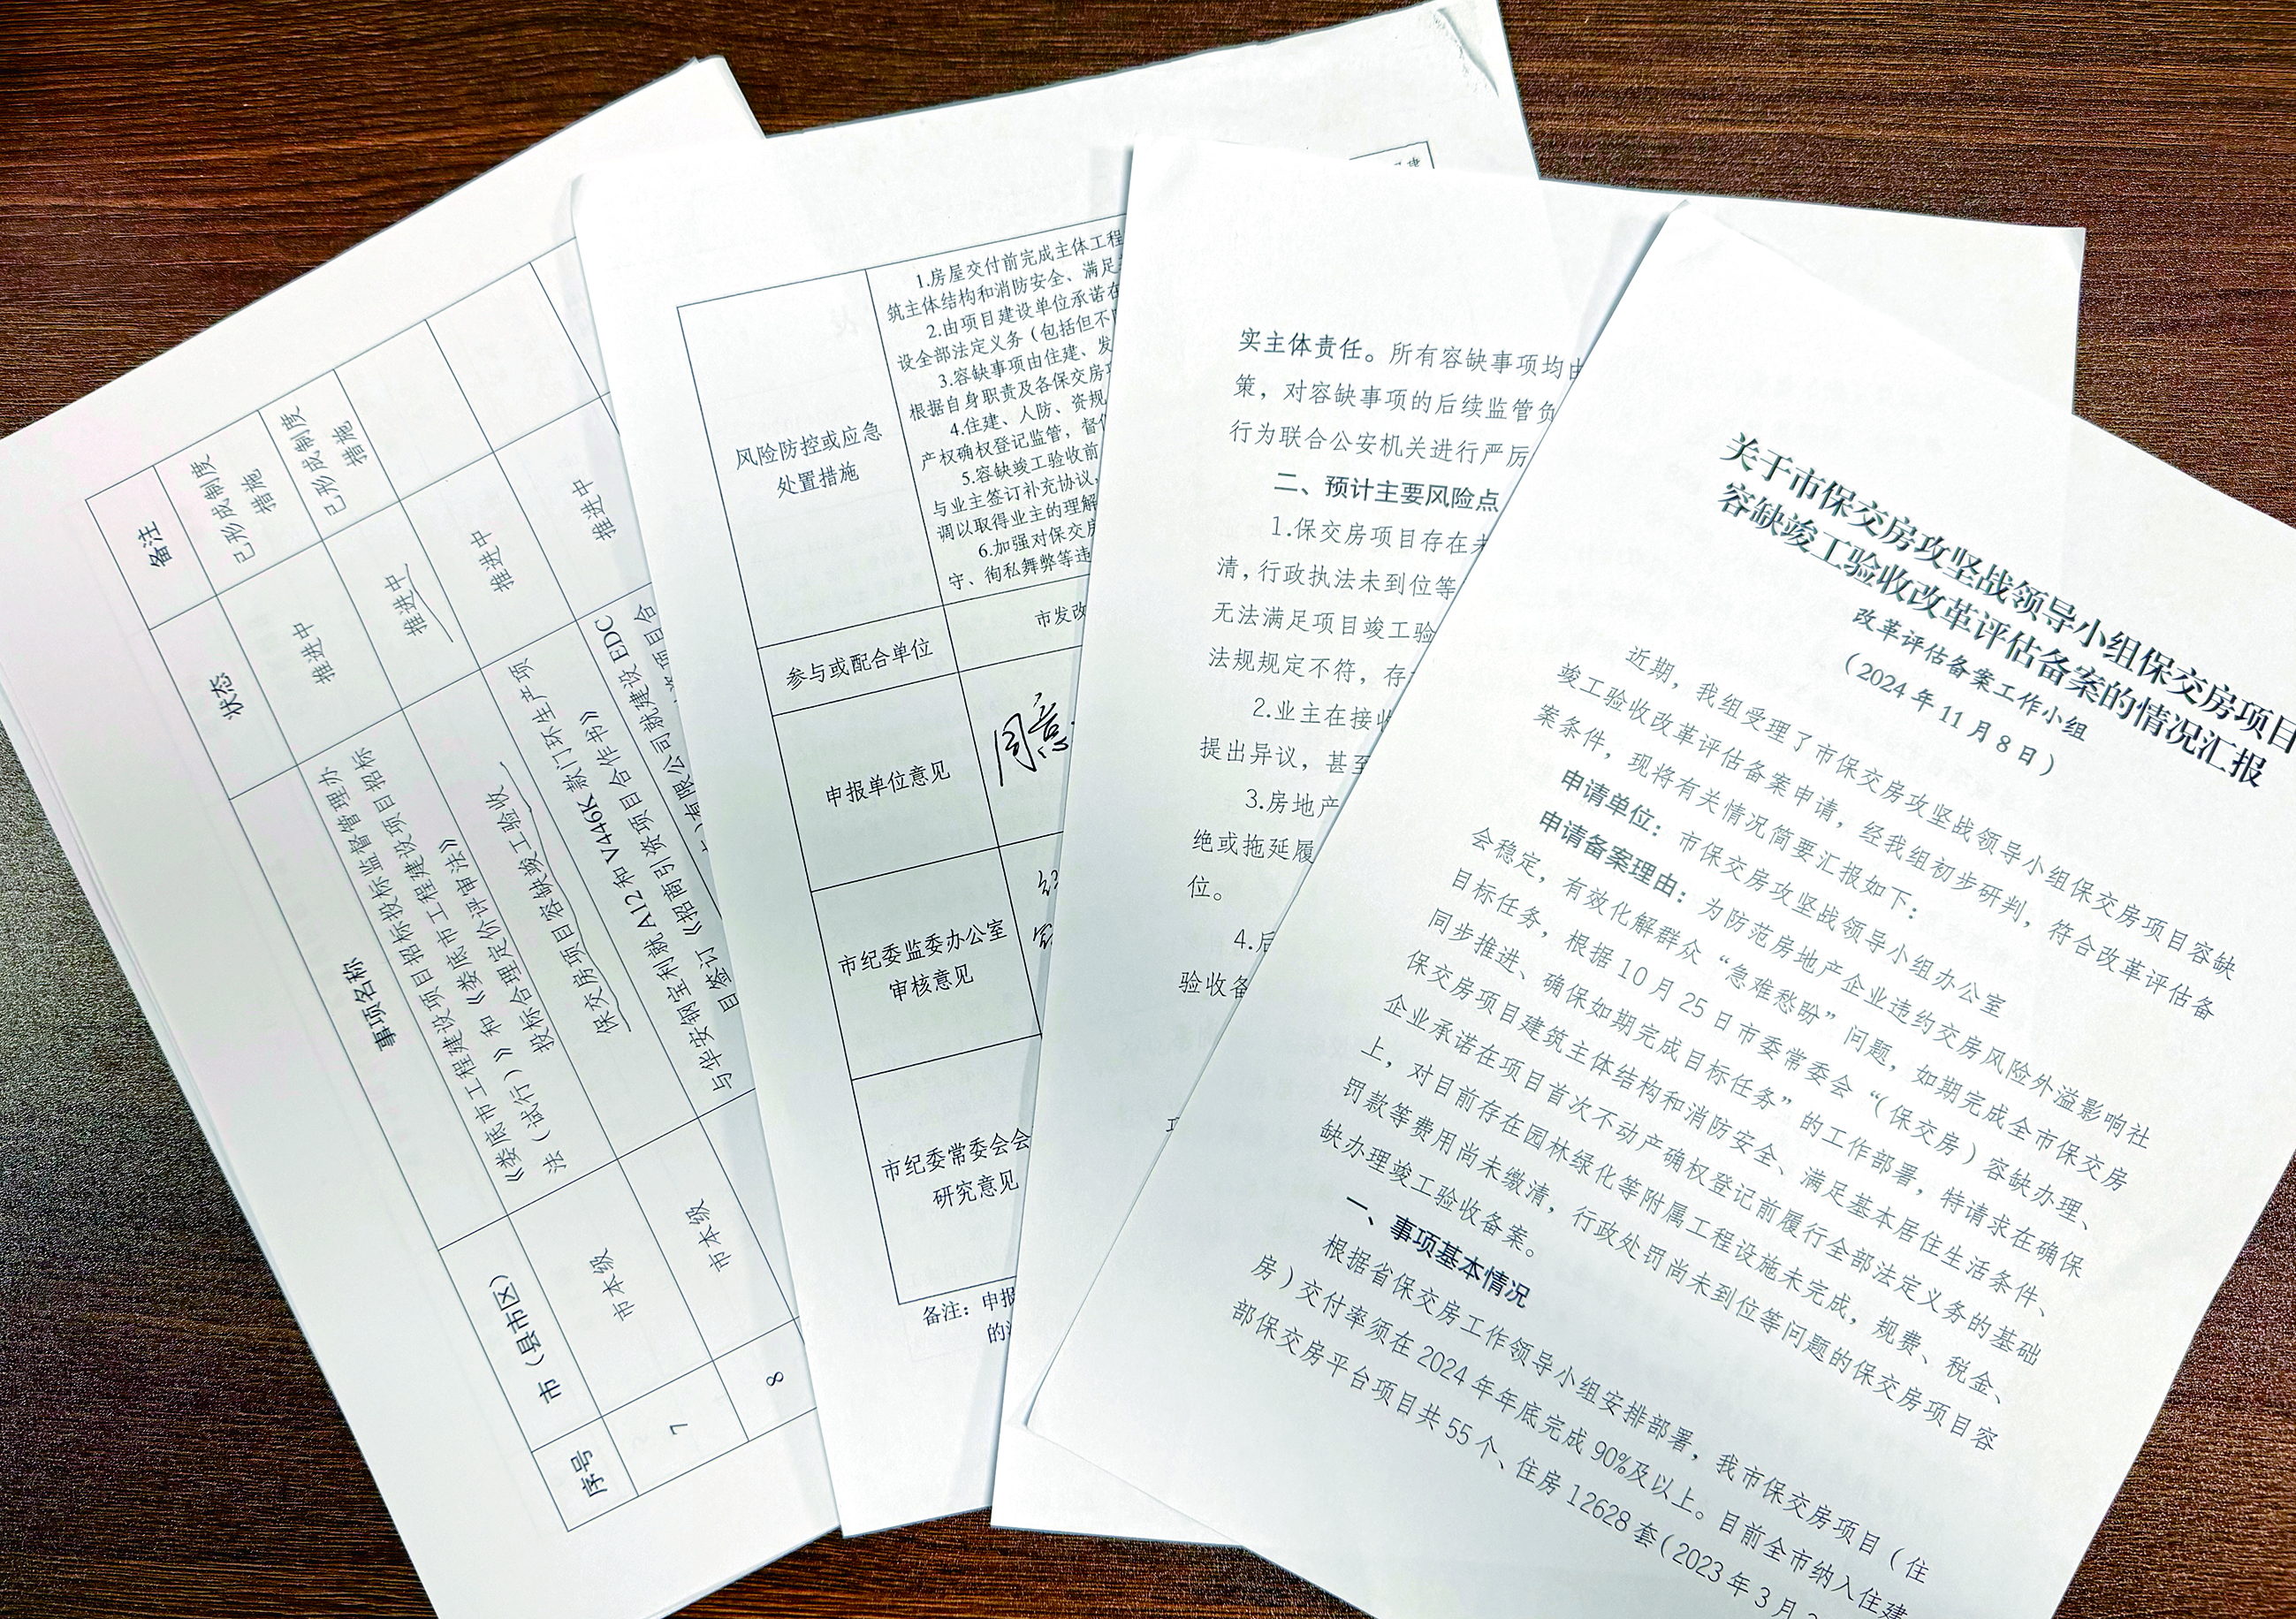 备注
已形成制度
措施
已形成制度
措施
状态
推进中
推进中
推进中
推进中
事项名称
《娄底市工程建设项目招标投标监督管理办
法（试行）》和《娄底市工程建设项目招标
投标合理定价评审法》
保交房项目容缺竣工验收
与华安钢宝利就A12和V446K款门环生产项
目签订《招商引资项目合作书》
有限公司就建设EDC
项目合
市（县市区）
市本级
市本级
序号
7
8
风险防控或应急
处置措施
1.房屋交付前完成主体工程
筑主体结构和消防安全、满足
2.由项目建设单位承诺在
设全部法定义务（包括但不
3.容缺事项由住建、发
根据自身职责及各保交房
4.住建、人防、资规
产权确权登记监管，督
5.容缺竣工验收前
与业主签订补充协议，
调以取得业主的理解
6.加强对保交房
守、徇私舞弊等违
参与或配合单位
市发改
申报单位意见
同意
市纪委监委办公室
审核意见
市纪委常委会会
研究意见
备注：申报
的
实主体责任。所有容缺事项均由
策，对容缺事项的后续监管负
行为联合公安机关进行严厉
二、预计主要风险点
1.保交房项目存在未
清，行政执法未到位等
无法满足项目竣工验
法规规定不符，存
2.业主在接收
提出异议，甚至
3.房地产
绝或拖延履
位。
4.后
验收备
关于市保交房攻坚战领导小组保交房项目
容缺竣工验收改革评估备案的情况汇报
改革评估备案工作小组
（2024年11月8日）
近期，我组受理了市保交房攻坚战领导小组保交房项目容缺
竣工验收改革评估备案申请，经我组初步研判，符合改革评估备
案条件，现将有关情况简要汇报如下：
申请单位：市保交房攻坚战领导小组办公室
申请备案理由：为防范房地产企业违约交房风险外溢影响社
会稳定，有效化解群众“急难愁盼”问题，如期完成全市保交房
目标任务，根据10月25日市委常委会“（保交房）容缺办理、
同步推进、确保如期完成目标任务”的工作部署，特请求在确保
保交房项目建筑主体结构和消防安全、满足基本居住生活条件、
企业承诺在项目首次不动产确权登记前履行全部法定义务的基础
上，对目前存在园林绿化等附属工程设施未完成，规费、税金、
罚款等费用尚未缴清，行政处罚尚未到位等问题的保交房项目容
缺办理竣工验收备案。
一、事项基本情况
根据省保交房工作领导小组安排部署，我市保交房项目（住
房）交付率须在2024年年底完成90%及以上。目前全市纳入住建
部保交房平台项目共55个、住房12628套（2023年3月